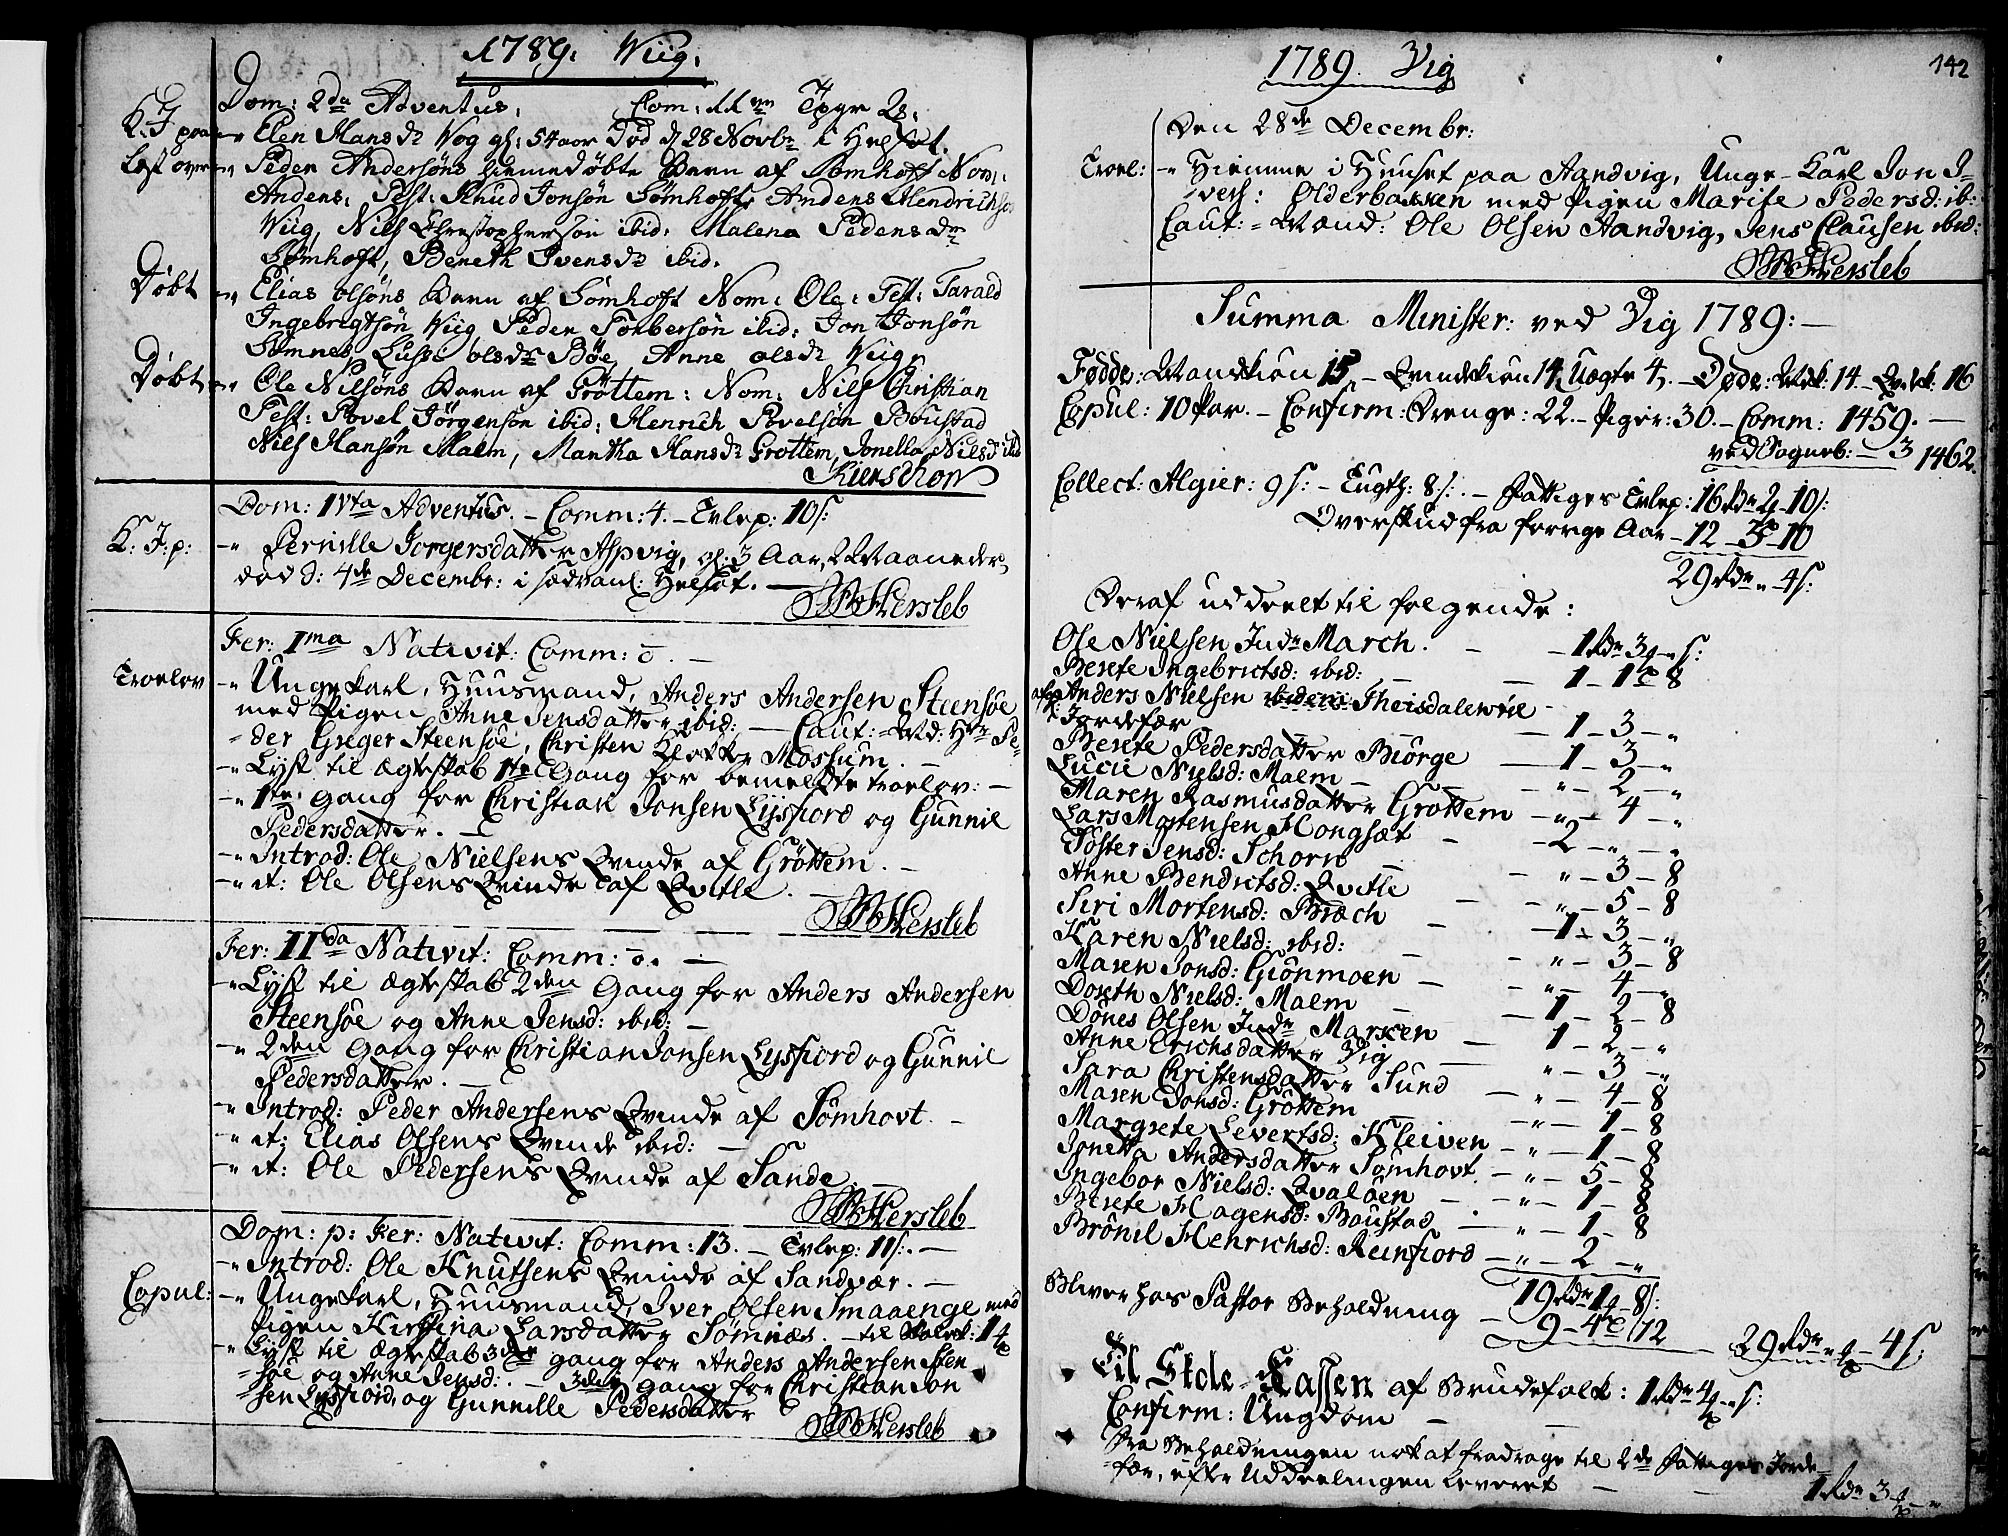 1789. Wiig.
Dom: 2da Adventus. Com: 11 Tpgr 28.
K. J. paa Elen Hansdr Wog gl: 54 aar død d. 28 Novbr i Helsot.
Lyst over Peder Andersøns hiemedøbte Barn af Sømhofft Nom:
Anders, Test: Knud Jonsøn Sømhofft, Anders Hendrichsøn
Wiig, Nils Christophersøn ibid: Malena Pedersdr
Sømhofft, Bereth Iversdr ibid.
Døbt Elias olsøns Barn af Sømhofft Nom: Ole: Test: Tarald
Ingebrigtsøn Wiig Peder Torbersøn ibid: Jon Jonsøn
Sømnes Lusse olsdr Bøe, Anne olsdr Wiig
Døbt Ole Nilsøns Barn af Grøttem: Nom: Nils Christian
Test: Povel Jørgensøn ibid: Henrich Povelsøn Boustad
Nils Hansøn Malm, Martha Hansdr Grottem, Jonella Nilsdr ibid
Kierschow
Dom: IVta Adventus. - Comm: 4. - Tvlep: 10 s:
K: J: p: -" Pernille Jorgersdatter Aspvig, gl: 3 Aar, 2 Maaneder,
død d: 4de Decembr: i sædvanl: Helsot.
Hersleb
Fer: Ima Nativit: Comm: ō. -
Troelov -" Ungekarl, Huusmand, Anders Andersen Steensøe
med Pigen Anne Jensdatter ibid: - Caut:=Md: Hr Pe=
=der Greger Steensøe, Christen Klokker Mossum. -
-" Lyst til Ægteskab 1te Gang for bemeldte troelov: -
-" 1te Gang for Christian Jonsen Lysfiord og Gunnil
Pedersdatter. -
-" Introd: Ole Nielsens Qvinde af Grøttem. -
-" it: Ole Olsens Qvinde af Qvitle. -
Hersleb
Fer: IIda Nativit: Comm: ō. -
-" Lyst til Ægteskab 2den Gang for Anders Andersen
Steensøe og Anne Jensd: ibid: -
-" 2den Gang for Christian Jonsen Lysfiord og Gunnil
Pedersdatter. -
-" Introd: Peder Andersens Qvinde af Sømhovt. -
-" it: Elias Olsens Qvinde ibid: -
-" it: Ole Pedersens Qvinde af Sande. -
Hersleb
Dom: p: Fer: Nativit: Comm: 13. - Tvlep: 11 s:. -
-" Introd: Ole Knutsens Qvinde af Sandvær. -
Copul: -" Ungekarl, Huusmand, Iver Olsen Smaaenge med
Pigen Kirstina Larsdatter Sømnæs. - til
-" Lyst til Ægteskab 3de gang for Anders Andersen Sten
=søe og Anne Jensd: - 3die gang for Christian Jon
=sen Lysfiord, og Gunnille Pedersdatter
Hersleb
1789. Vig
142
Den 28de Decembr:
Troel: -" Hiemme i Huuset paa Aandvig, Unge-Karl Jon I=
vers: Olderbakken med Pigen Marite Pedersd: ib:
Caut:=Mænd: Ole Olsen Aandvig, Jens Clausen ibid:
Hersleb
Summa Minister: ved Vig 1789: -
Fødde: Mandkiøn 15, - Qvindekiøn 14, Uægte 4, - Døde: Mdk: 14 - Qvdk: 16
Copul: 10 Par. - Confirm: Drenge: 22 - Piger: 30. - Comm: 1459. -
ved Sogneb: - 3 1462.
Collect: Algier: 9 s: - Eugth: 8 s:. - Fattiges Tvlep: 16 rdr 2 - 10 s:
Overskud fra forrige Aar - 12 - 3 - 10
29 Rdr " 4 s:
Deraf uddeelt til følgende:
Ole Nielsen Indr March. - - 1 Rdr 3 - " s:
Berete Ingebrictsd: ibid: - 1 - 1 - 8
Anders Nielsen Theisdalewiie
Jordefær - 1 - 3 - "
Berete Pedersdatter Biörge - 1 - 3 - "
Lucie Nielsd: Malm - - " - 2 - "
Maren Rasmusdatter Grottem - " - 4 - "
Lars Mortensen Hongsæt - 2 - " - "
Söster Jensd: Schorn - " - 3 - 8
Anne Bendictsd: Qvitle - " - 5 - 8
Siri Mortensd: Bræch - 1 - 3 - "
Karen Nielsd: ibid: - " - 3 - 8
Maren Jonsd: Giönmoen - " - 4 - "
Doreth Nielsd: Malm - 1 - 2 - 8
Dönes Olsen Indr Marken - 1 - 2 - "
Anne Erichsdatter Vig - " - 3 - "
Sara Christensdatter Sund - " - 4 - 8
Maren Jonsd: Gröttem - " - 1 - 8
Margrete Levertsd: Kleiven - " - 1 - 8
Jonetta Andersdatter Sømhovt. - " - 5 - 8
Ingebor Nielsd: Qvalöen - " - 1 - 8
Berete Hagensd: Boustad - " - 1 - 8
Brönil Henrichsd: Reinfiord - " - 2 - "
19 Rdr 1 - 8 s:
Bliver hos Pastor Beholdning - 9 - 4 - 12
29 Rdr " - 4 s:
Til Skole=Kassen af Brudefolk: 1 Rdr 4 - " s:
Confirm: Ungdom -
Fra Beholdningen nok at fradrage til 2de Fattiges Jorde
=fær, efter Uddeelingen leveret - 1 Rdr 3 - "